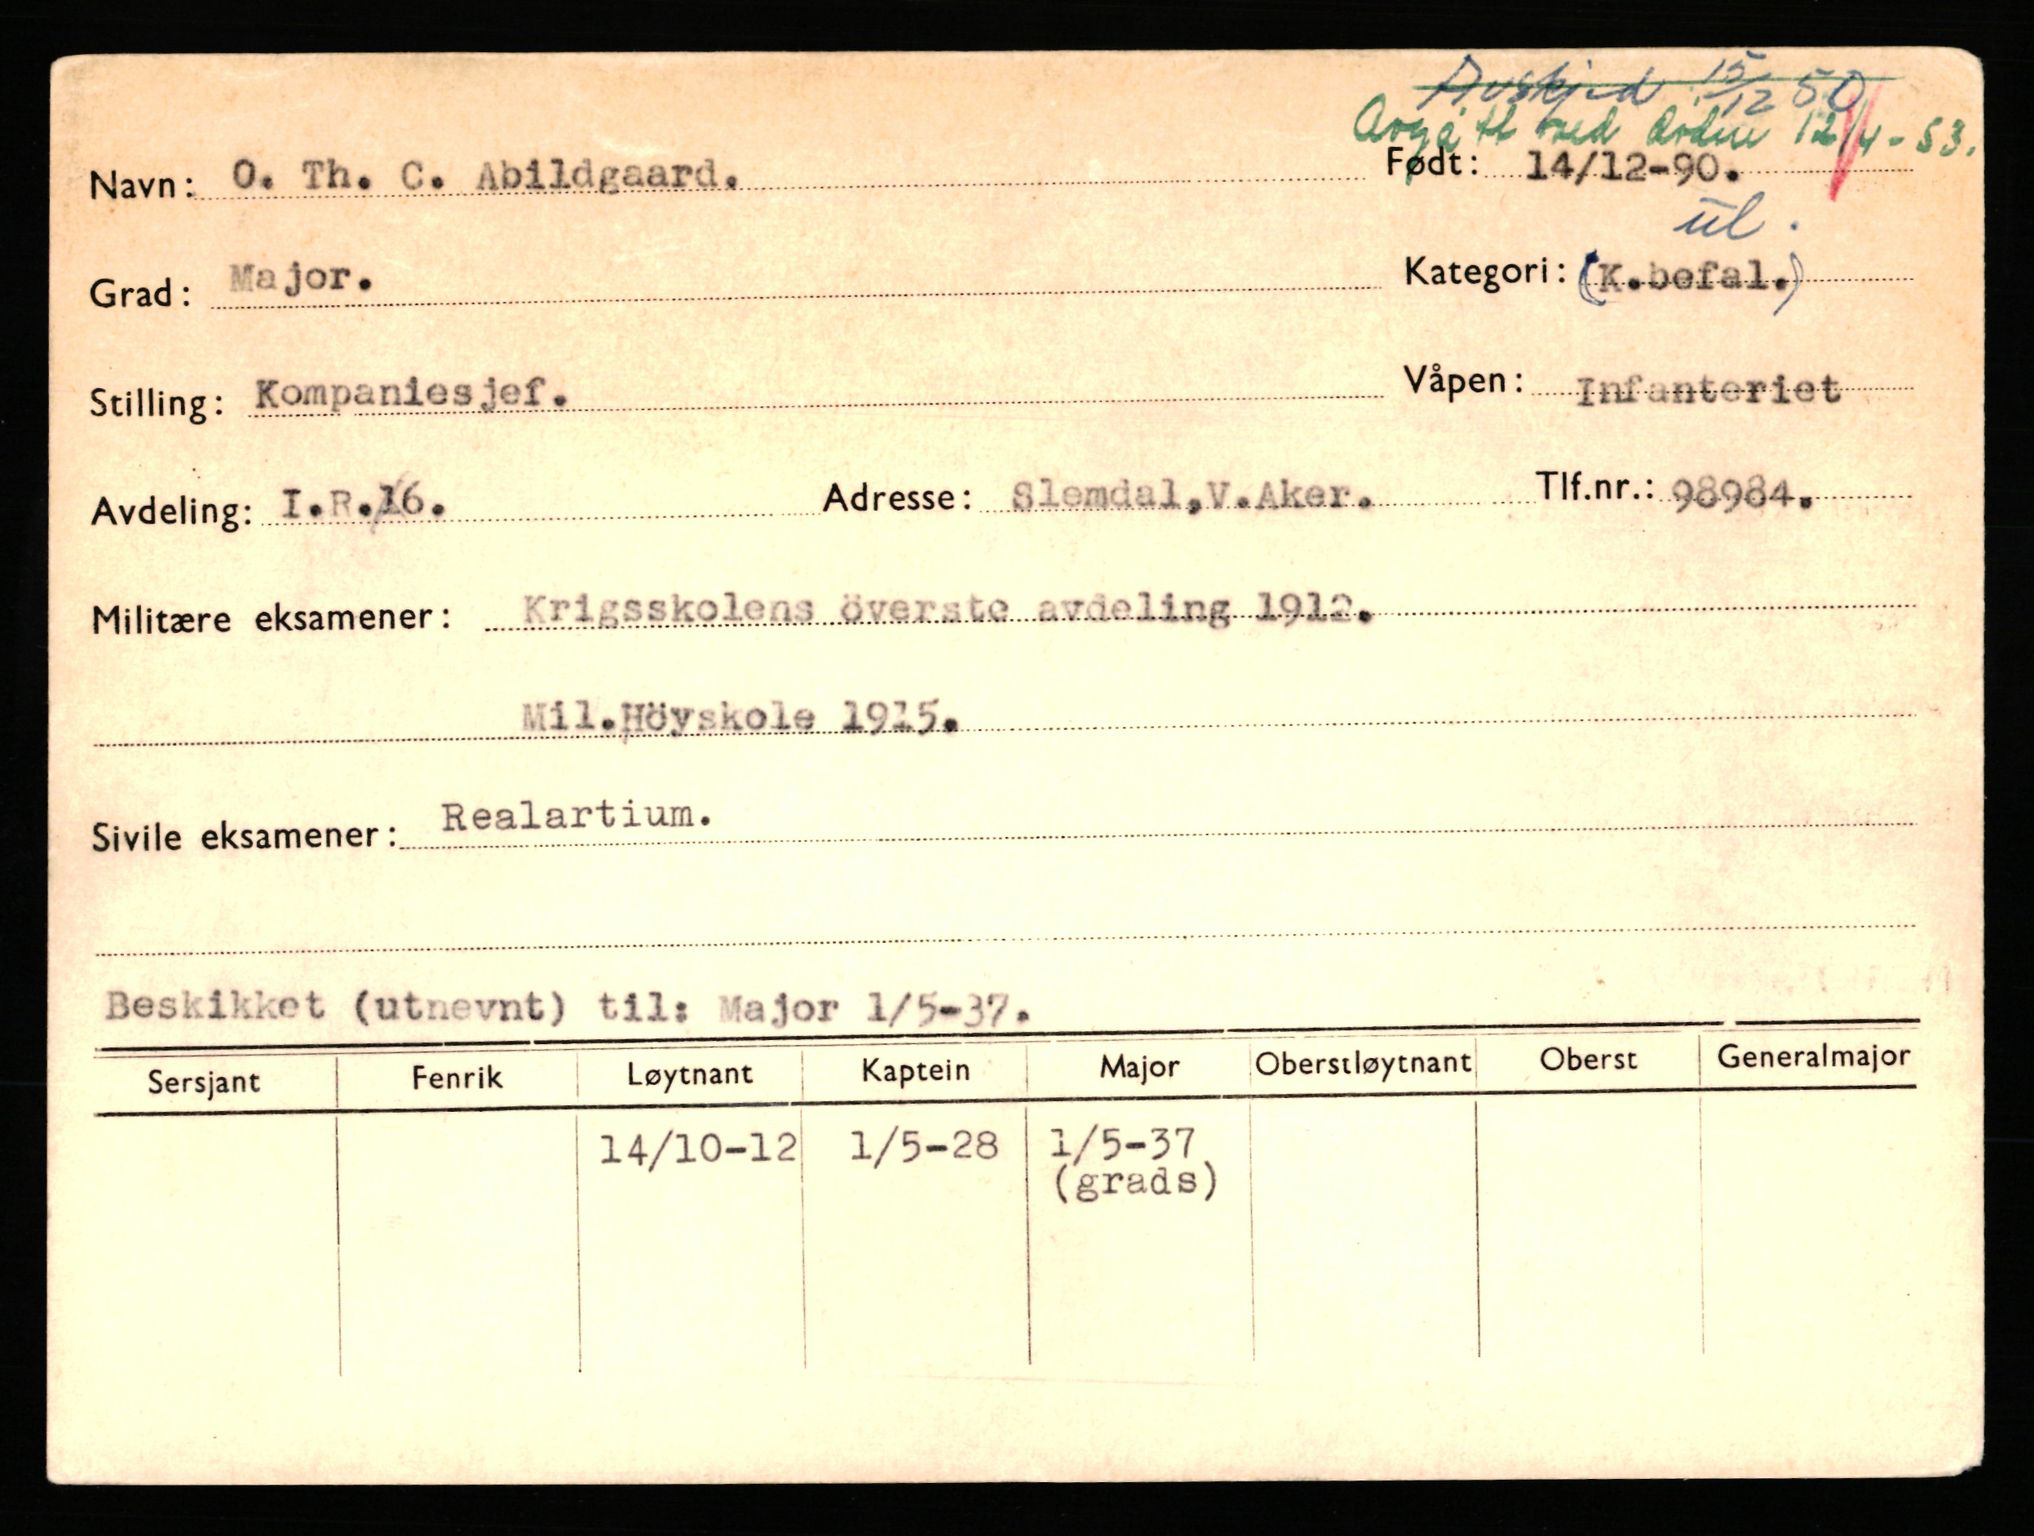 Avskjed 15/12 50
Avgått ved døden 12/4-53.
Navn: O. Th. C. Abildgaard. Født: 14/12-90.
ul.
Grad: Major. Kategori: (K.befal.)
Stilling: Kompaniesjef. Våpen: Infanteriet
Avdeling: I.R.16. Adresse: Slemdal,V.Aker. Tlf.nr.: 98984.
Militære eksamener: Krigsskolens överste avdeling 1912.
Mil.Höyskole 1915.
Sivile eksamener: Realartium.
Beskikket (utnevnt) til: Major 1/5-37.
Sersjant Fenrik Løytnant Kaptein Major Oberstløytnant Oberst Generalmajor
14/10-12 1/5-28 1/5-37
(grads)